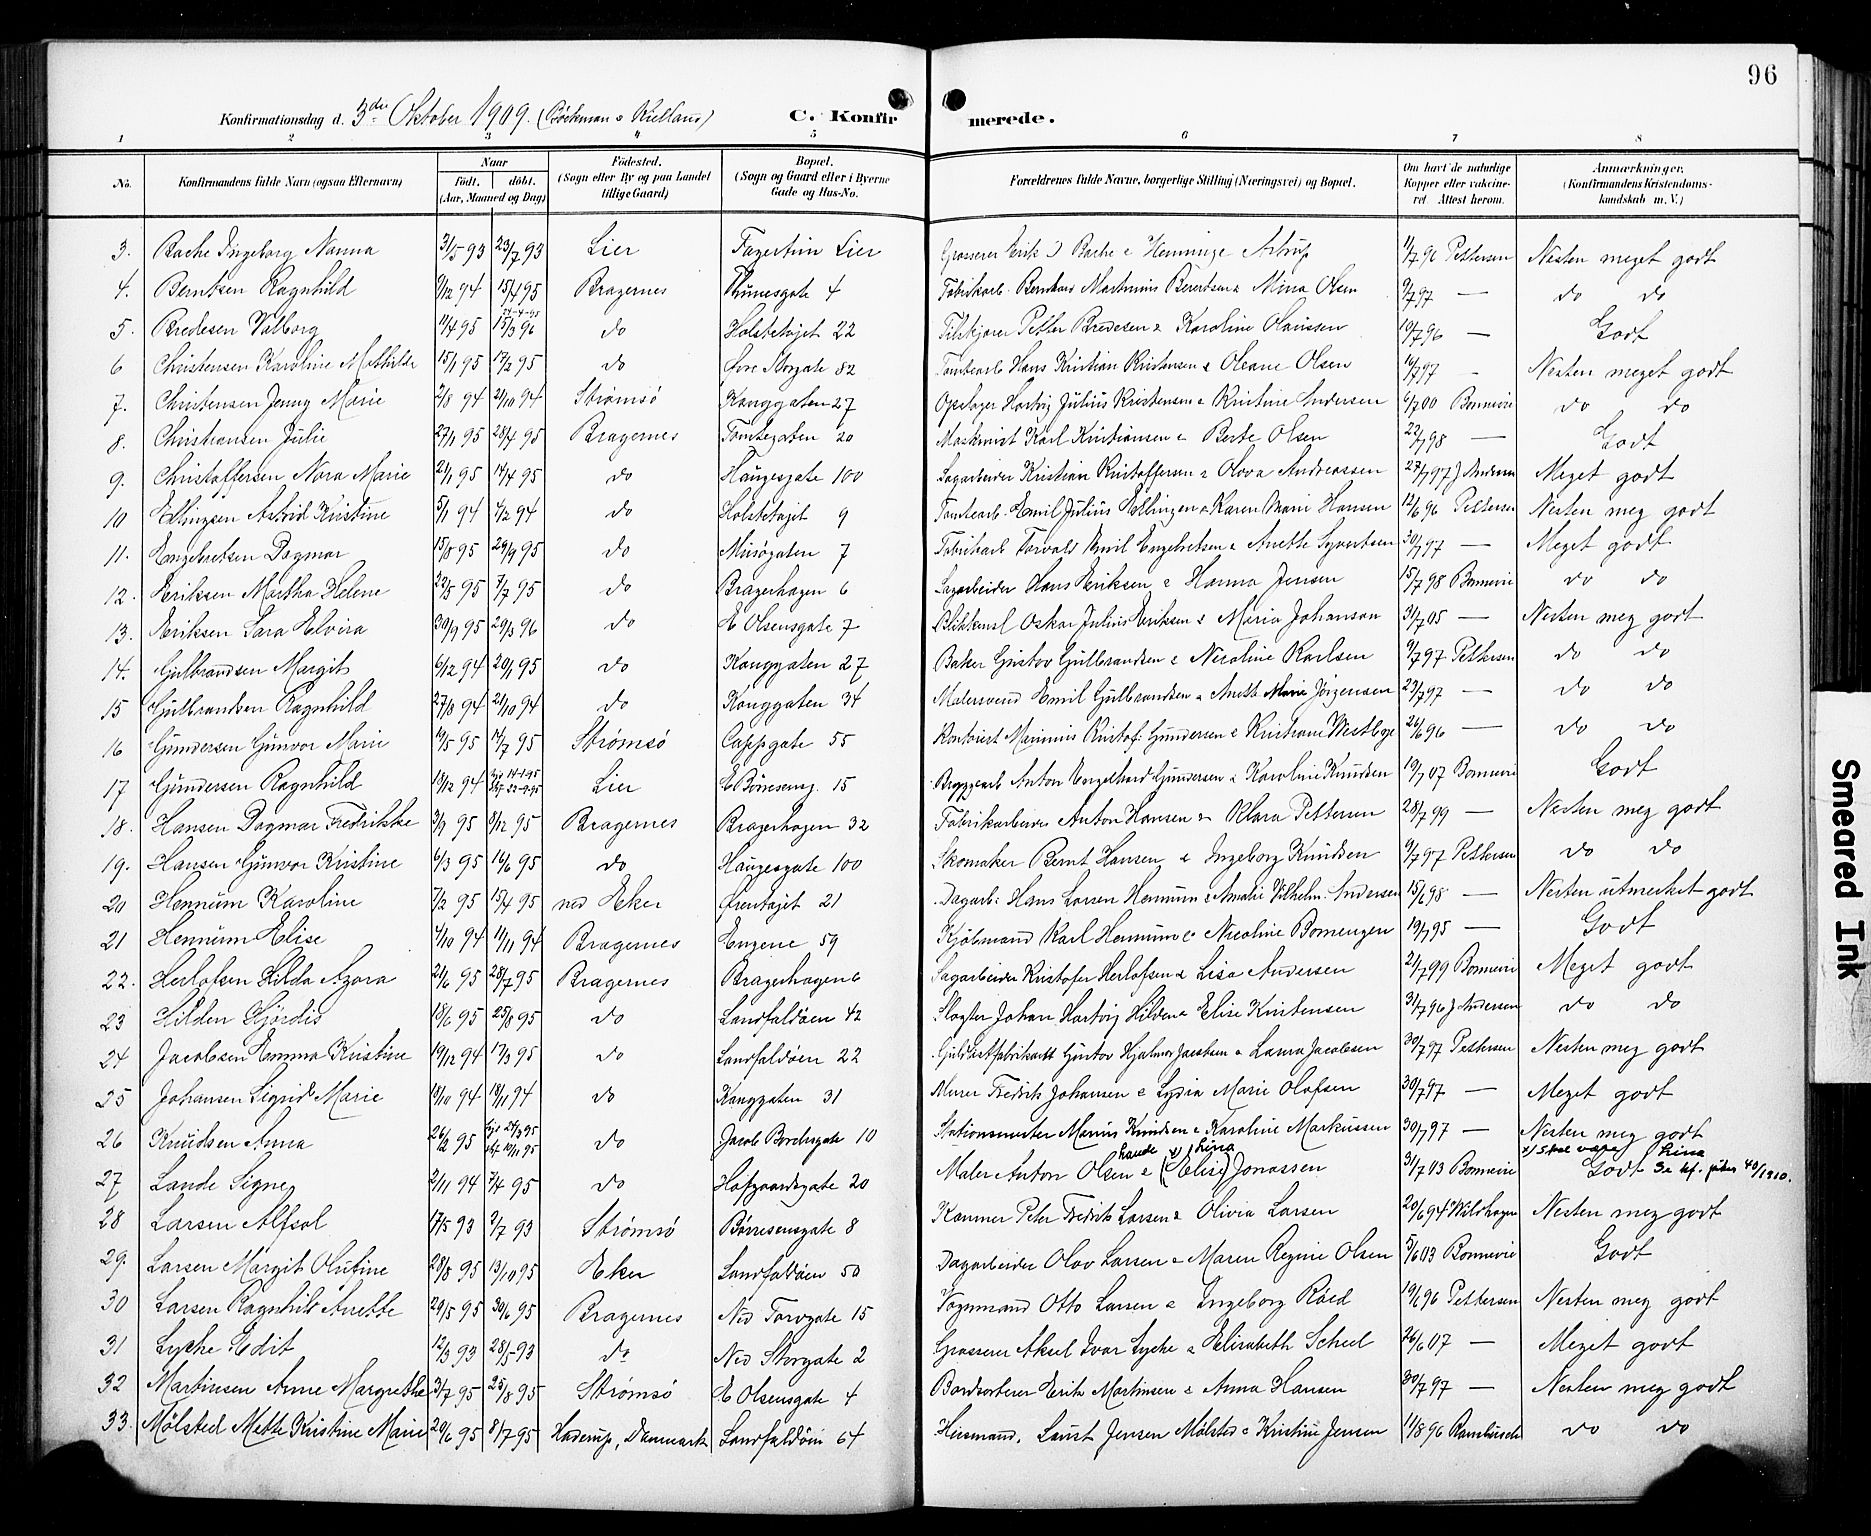 96
Konfirmationsdag d. 3die Oktober 1909. (Böckman o Kielland) C. Konfirmerede.
1 2 3 4 5 6 7 8
No. Konfirmandens fulde Navn (ogsaa Efternavn) Naar födt. döbt. (Aar, Maaned og Dag) Födested. (Sogn eller By og paa Landet tillige Gaard) Bopæl. (Sogn og Gaard eller i Byerne Gade og Hus-No. Forældrenes fulde Navne, borgerlige Stilling (Næringsvei) og Bopæl. Om havt de naturlige Kopper eller vakcineret. Attest herom. Anmærkninger. (Konfirmandens Kristendomskundskab m. V.)
3. Bache Ingeborg Nanna 3/5 93 23/7 93 Lier Fagertun Lier Grosserer Erik Bache & Hemminge Astrup 11/7 96 Pettersen Nesten meget godt
4. Berntsen Ragnhild 9/12 94 15/4 95 Bragernes Thunesgate 4 Fabrikarb. Bernhard Martinius Berntsen & Mina Olsen 9/7 97 — do do
5. Bredesen Valborg 11/4 95 15/3 96 do Holstetøjet 22 Petter Bredesen & Karoline Olaussen 10/7 96 — Godt
6 Christensen Karoline Mathilde 15/1 95 17/2 95 do Øvre Storgate 82 Tomtearb Hans Kristian Kristensen & Oleane Olsen 14/7 97 - Nesten meget godt
7. Christensen Jenny Marie 2/8 94 21/10 94 Strømsö Konggaten 27 Opslager Hartvig Julius Kristensen & Kristine Andersen 6/7 00 Bonnevie do do
8. Christiansen Julie 27/1 95 28/4 95 Bragernes Tomtegaten 20 Maskinist Karl Kristiansen & Berte Olsen 22/7 98 — Godt
9. Christoffersen Nora Marie 21/1 95 14/4 95 do Haugesgate 100 Sagarbeider Kristian Kristoffersen & Olova Andreassen 27/7 97 J Andersen Meget godt
10 Ellingsen Astrid Kristine 5/1 94 4/12 94 do Holstetøjet 9 Tomtearb. Emil Julius Ellingsen & Karen Marie Hansen 12/6 96 Pettersen Nesten meg godt
11. Engebretsen Dagmar 15/8 95 29/9 95 do Musögaten 7 Fabrikarb Torvald Emil Engebretsen & Anette Syvertsen 30/7 97 — Meget godt
12. Eriksen Martha Helene 22/5 95 7/7 95 do Bragerhagen 6 Sagarbeider Hans Eriksen & Hanna Jensen 15/7 98 Bonnevie do do
13. Eriksen Sara Elvira 30/9 95 29/3 96 do E Olsensgate 7 Oskar Julius Eriksen & Maria Johanson 31/7 05 — Nesten meg godt
14. Gulbrandsen Margit 6/12 94 20/1 95 do Konggaten 27 Baker Gustav Gulbrandsen & Nicoline Karlsen 9/7 97 Pettersen do do
15 Gulbrandsen Ragnhild 27/8 94 21/10 94 do Konggaten 34 Malersvend Emil Gulbrandsen & Anette Marie Jörgensen 23/7 97 — do do
16 Gundersen Gunvor Marie 19/5 95 14/7 95 Strømsö Cappgate 55 Kontorist Marinius Kristof. Gundersen & Kristiane Westbye 26/6 96 — do do
17 Gundersen Ragnhild 18/12 94 Lier E Börresensg. 15 Bryggearb Anton Engelhard Gundersen & Karoline Knudsen 19/7 07 Bonnevie Godt
18. Hansen Dagmar Fredrikke 3/9 95 8/12 95 Bragernes Bragerhagen 32 Fabrikarbeider Anton Hansen & Klara Pettersen 28/7 99 — Nesten meg godt
19. Hansen Gunvor Kristine 6/3 95 16/6 95 do Haugesgate 100 Skomaker Bernt Hansen & Ingeborg Knudsen 9/7 97 Pettersen do do
20 Hennum Karoline 7/2 95 15/4 95 ned Eker Ørentøjet 21 Dagarb. Hans Larsen Hennum & Amalie Vilhelm. Andersen 15/6 98 — Nesten utmerket godt
21 Hennum Elise 4/10 94 11/11 94 Bragernes Engene 59 Kjöbmand Karl Hennum & Nicoline Bomengen 19/7 95 — Godt
22. Herlofsen Hilda Agora 21/6 95 28/7 95 Bragernes Bragerhagen 6 Sagarbeider Kristofer Herlofsen & Lisa Andersen 21/7 99 Bonnevie Meget godt
23 Hilden Hjördis 18/6 95 25/8 95 do Landfaldöen 42 Slagter Johan Hartvig Hilden & Elise Kristensen 31/7 96 J Andersen do do
24 Jacobsen Emma Kristine 19/12 94 17/3 95 do Landfaldöen 22 Gustav Hjalmar Jacobsen & Laura Jacobsen 30/7 97 Pettersen Nesten meg godt
25 Johansen Sigrid Marie 18/10 94 18/11 94 do Konggaten 31 Murer Fredrik Johansen & Lydia Marie Olafsen 30/7 97 — Meget godt
26 Knudsen Anna 26/2 95 do Jacob Borchsgate 10 Stationsmester Marius Knudsen & Karoline Markussen 30/7 97 — Nesten meg godt
27 Lande Signe 2/11 94 7/4 95 do Hofgaardsgate 20 Maler Anton Olsen Lande & (Elise) x) Lina Jonassen 31/7 03 Bonnevie Godt x) Skal være Lina
28 Larsen Alfsol 17/5 93 2/7 93 Strømsö Börresensgate 8 Peter Fredrik Larsen & Olivia Larsen 20/6 94 Wildhagen Nesten meg godt
29. Larsen Margit Olufine 28/8 95 13/10 95 Eker Landfaldöen 50 Dagarbeider Olav Larsen & Maren Regine Olsen 5/6 03 Bonnevie Godt
30 Larsen Ragnhild Anette 29/5 95 30/6 95 Bragernes Ned Torvgate 15 Vognmand Otto Larsen & Ingeborg Röed 19/6 96 Pettersen Nesten meg godt
31 Lyche Edit 12/3 93 28/5 93 do Ned Storgate 2 Grosserer Aksel Ivar Lyche & Elisabeth Scheel 26/6 07 — Meget godt
32 Martinsen Anne Margrethe 3/7 95 25/8 95 Strømsö E Olsensgate 4 Bordsorterer Erik Martinsen & Anna Hansen 30/7 97 — Nesten meg godt
33. Mölsted Mette Kristine Marie 29/6 95 8/7 95 Haderup, Danmark Landfaldöen 64 Husmand. Laust Jensen Mölsted & Kristine Jensen 11/8 96 Rambusch do do
Smeared Ink